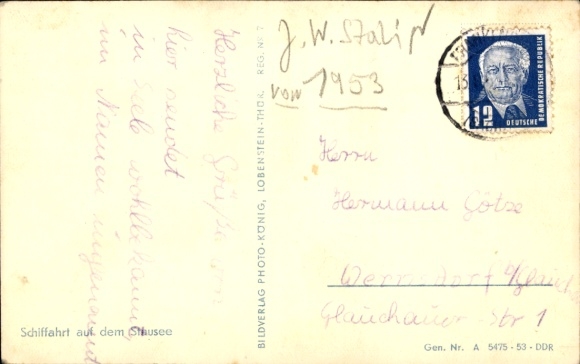 J. W. Stalin
von 1953
Herzliche Grüße von
hier sendet
im Namen
BILDVERLAG PHOTO-KÖNIG, LOBENSTEIN-THÜR. REG. NR. 7
12 DEUTSCHE
DEMOKRATISCHE REPUBLIK
Herrn
Hermann Götze
Wernsdorf
Glauchauer-Str 1
Schiffahrt auf dem Stausee
Gen. Nr. A 5475-53-DDR